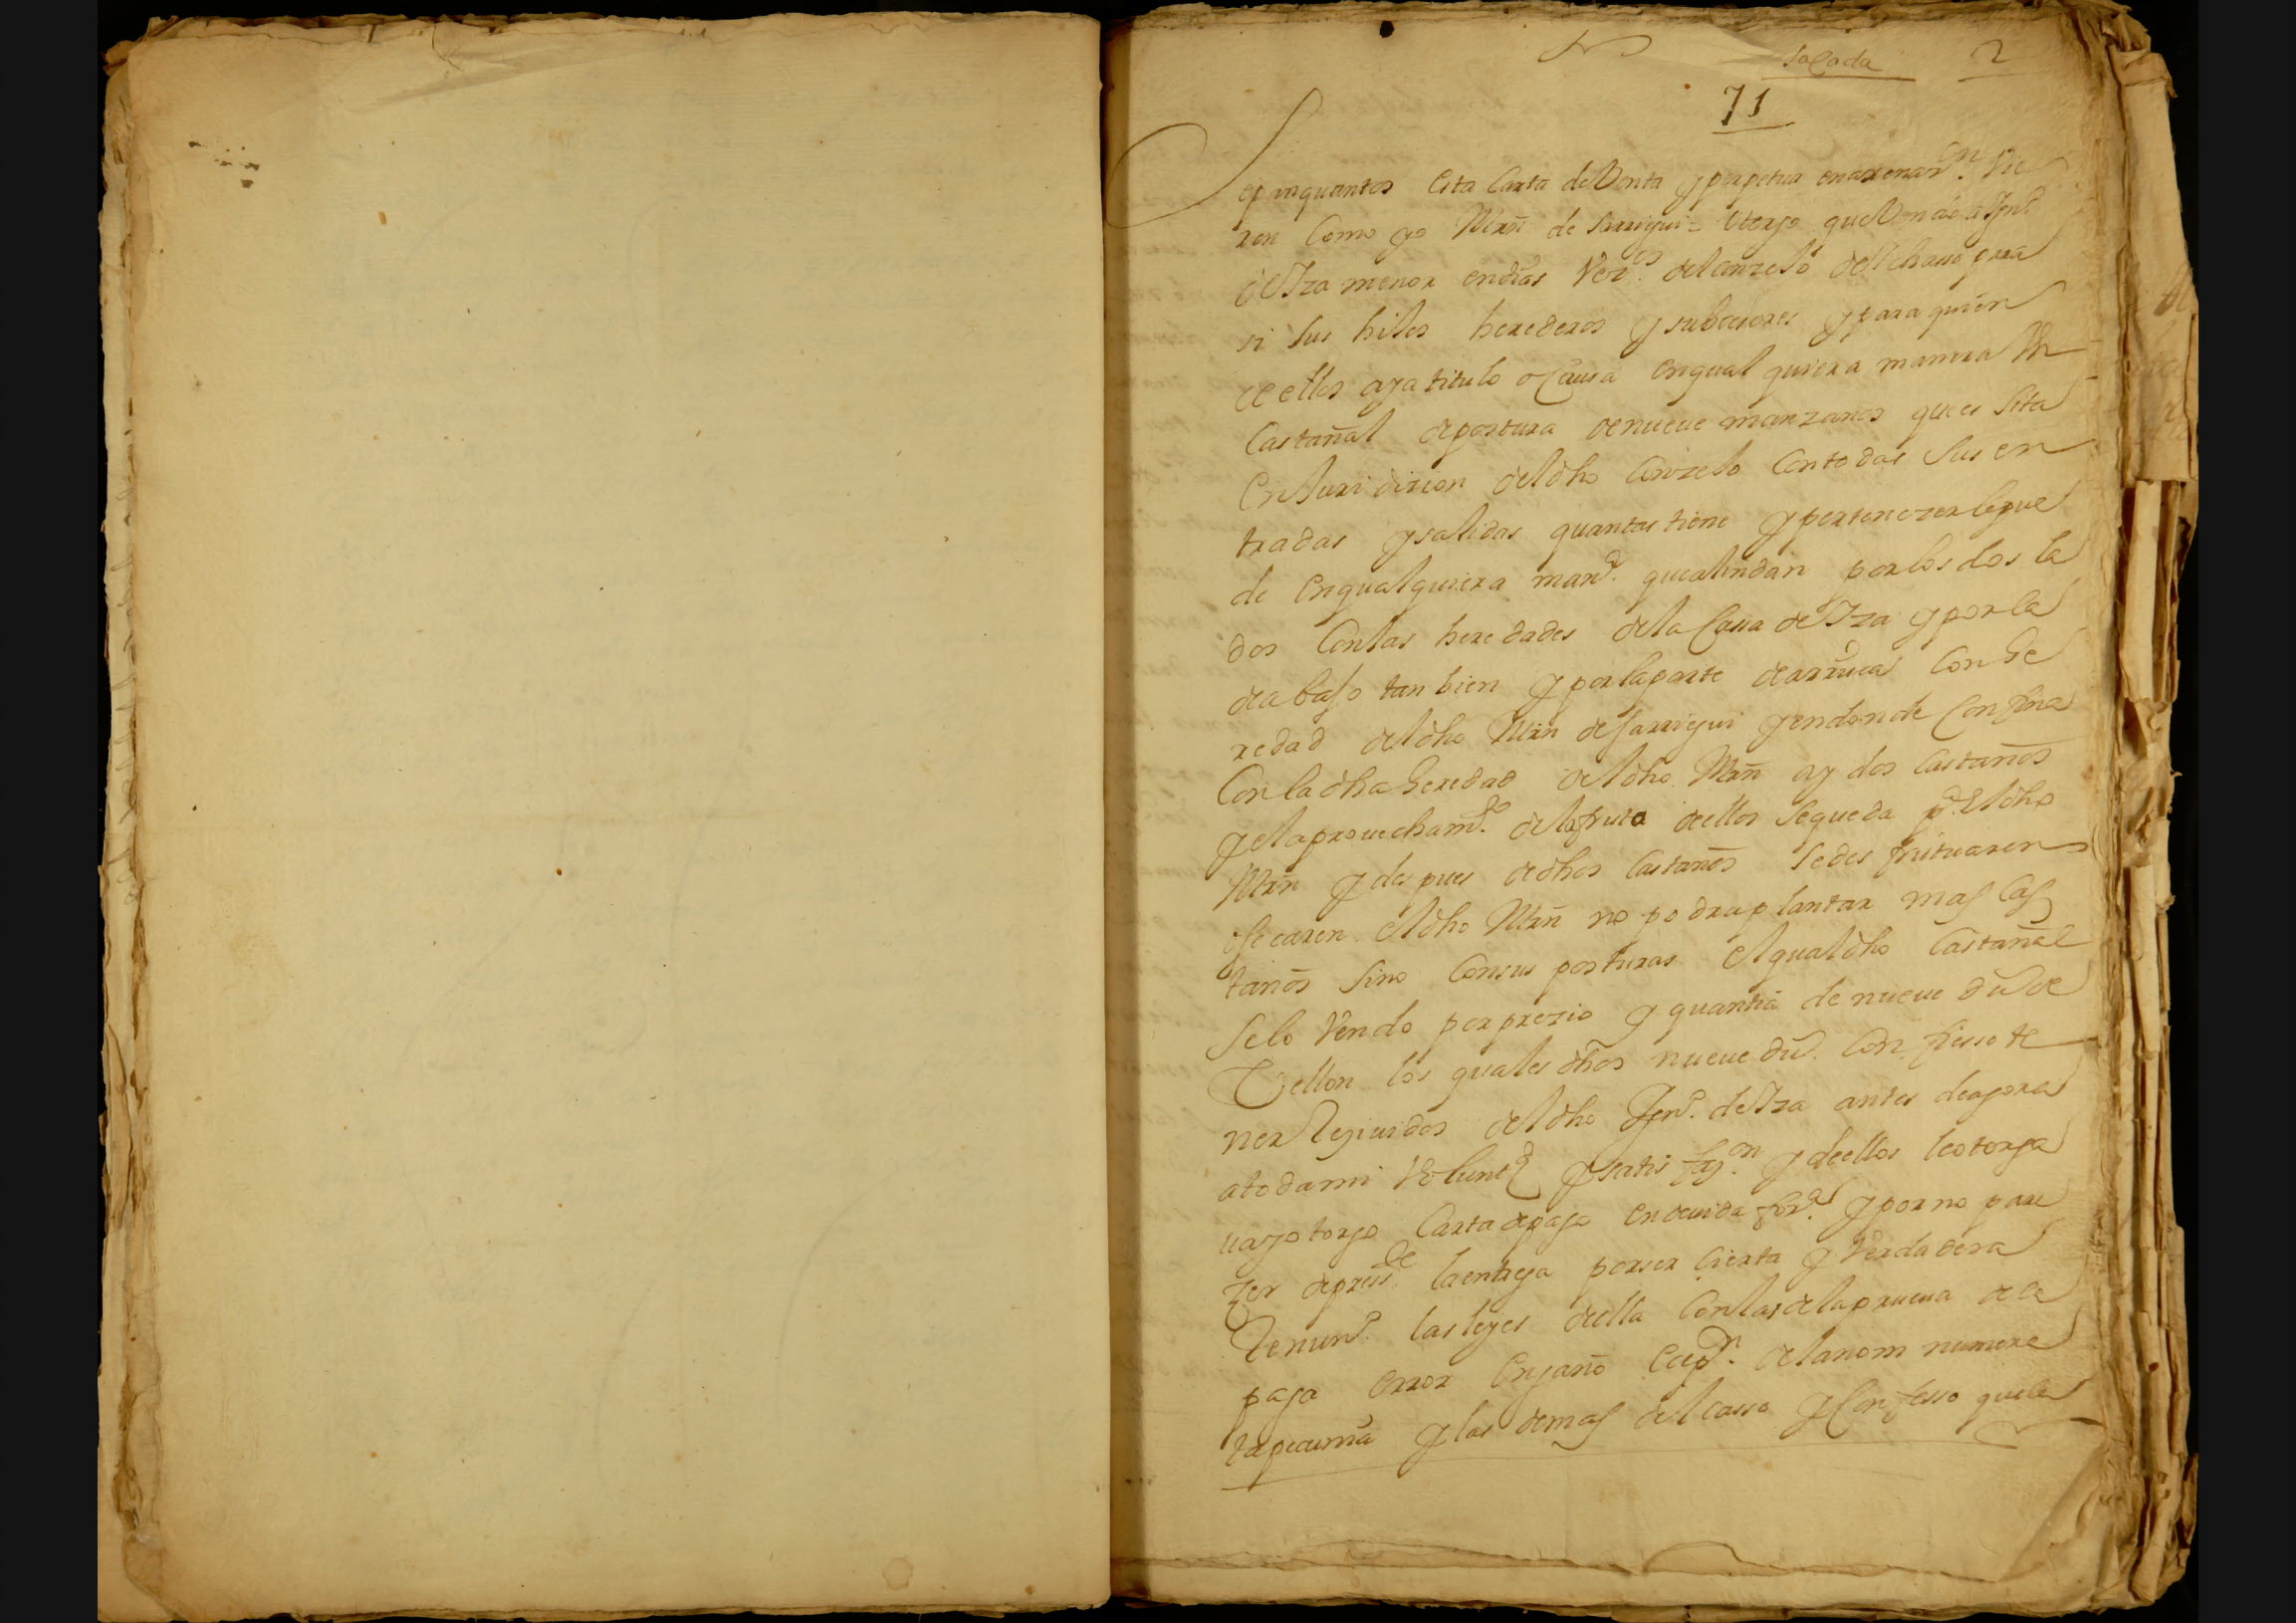 Sacada 2
71
Sepan quantos esta Carta de Venta y perpetua enaxenaon. Vie
ren Como yo Mrn de Sarrigui = otorgo que Vendo a
de Yza menor en dias Vezo. del conzejo de para
si sus hijos herederos y subcesores y para quien
de ellos aya titulo o Causa en qual quiera manera Vn
Castañal de postura de nueue manzanos que es sita
en Juridizion del dho Conzejo Con todas sus en
tradas y salidas quantas tiene y pertenezerle pue
de en qualquiera manra. que alindan por los dos la
dos Con las heredades de la Cassa de Yza y por la
de abajo tan bien y por la parte de arriua Con he
redad del dho Mrn de Sarrigui y en donde Confina
Con la dha heredad del dho Mrn ay dos Castaños
y el aprouechamto. de la fruta dellos se queda pa. el dho
Mrn y des pues de dhos Castaños se des frutuaren
o secaren el dho Mrn no podra plantar mas Cas
taños sino Con sus posturas el qual dho Castañal
se lo Vendo por prezio y quantia de nueue dus de
Vellon los quales dhos nueue dus. Confiesso te
ner Reziuidos del dho de Yza antes de agora
a toda mi Voluntd y satis fazon. y de ellos le otorga
ua y otorgo Carta de pago en deuida fora. y por no pare
zer de presste. la entrega por ser Cierta y Verdadera
Renunzo. las leyes della Con las de la prueua de la
paga error engaño ecepn. de la nom numera
ta pecunia y las demas del casso y Confiesso que la